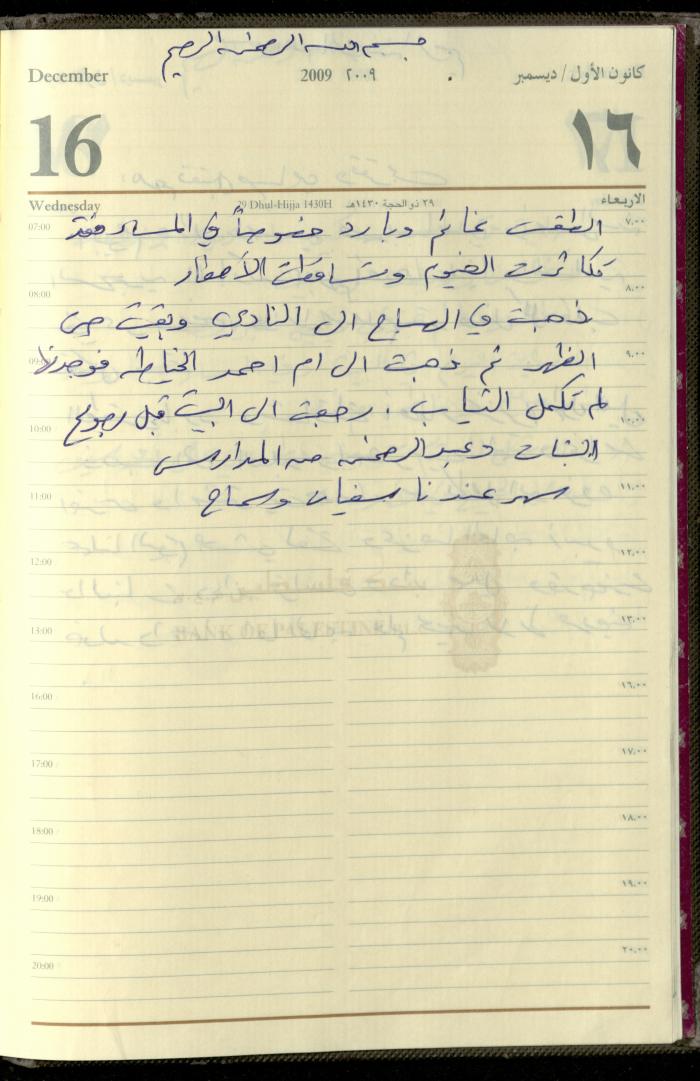 بسم الله الرحمن الرحيم
December 2009 ٢٠٠٩ كانون الأول / ديسمبر
16 ١٦
Wednesday 29 Dhul-Hijja 1430H ٢٩ ذو الحجة ١٤٣٠هـ الاربعاء
07:00 ٧,٠٠
الطقس غائم وبارد خصوصاً في المساء فقد
تكاثرت الغيوم وتساقطت الأمطار
08:00 ٨,٠٠
ذهبت في الصباح الى النادي وبقيت حتى
09:00 ٩,٠٠
الظهر ثم ذهبت الى ام احمد الخياطه فوجدتها
لم تكمل الثياب . رجعت الى البيت قبل رجوع
10:00 ١٠,٠٠
البنات وعبد الرحمن من المدارس
11:00 ١١,٠٠
سهر عندنا سفيان وسماح
12:00 ١٢,٠٠
13:00 ١٣,٠٠
BANK OF PALESTINE
16:00 ١٦,٠٠
17:00 ١٧,٠٠
18:00 ١٨,٠٠
19:00 ١٩,٠٠
20:00 ٢٠,٠٠